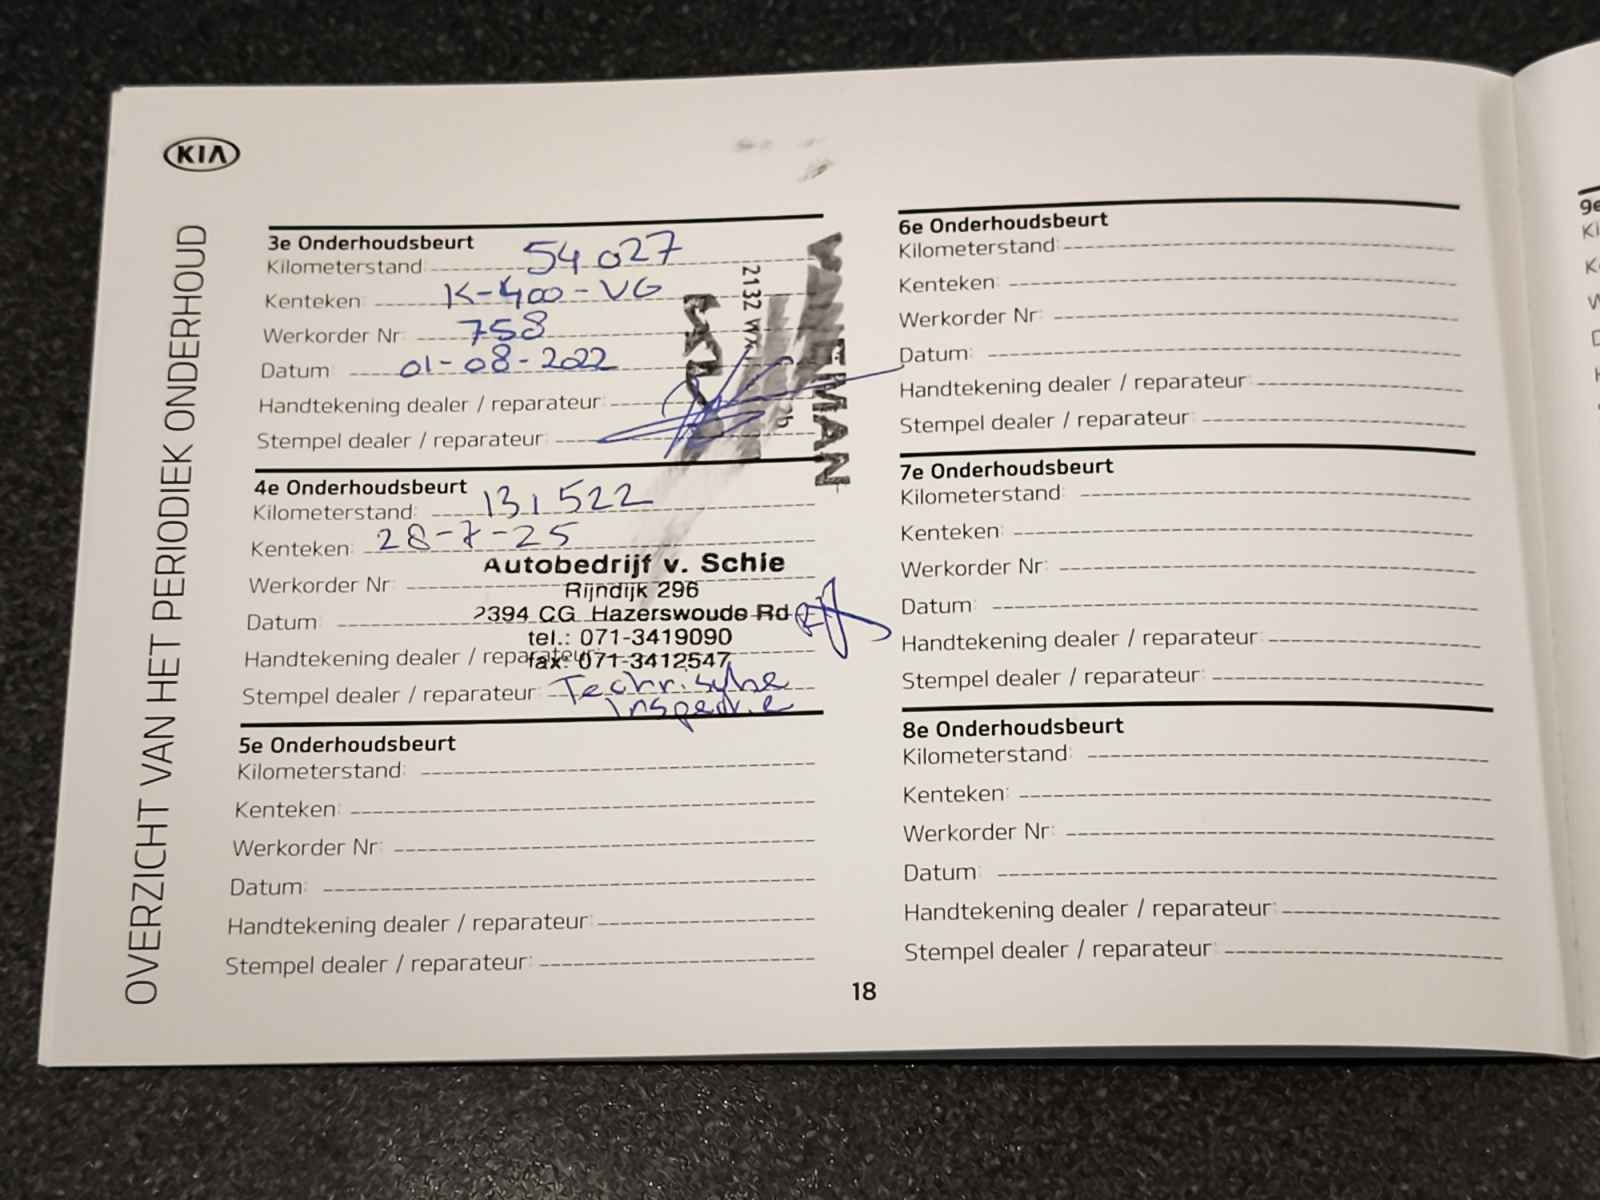 KIA
OVERZICHT VAN HET PERIODIEK ONDERHOUD
3e Onderhoudsbeurt
Kilometerstand: 54027
Kenteken: K-400-VG
Werkorder Nr: 758
Datum 01-08-2022
Handtekening dealer / reparateur:
Stempel dealer / reparateur:
KIA
2132 WX
2b
4e Onderhoudsbeurt
Kilometerstand: 131522
Kenteken: 28-7-25
Werkorder Nr:
Datum:
Handtekening dealer / reparateur:
Stempel dealer / reparateur: Technische
Inspectie
Autobedrijf v. Schie
Rijndijk 296
2394 CG Hazerswoude Rd
tel.: 071-3419090
fax: 071-3412547
5e Onderhoudsbeurt
Kilometerstand:
Kenteken:
Werkorder Nr:
Datum:
Handtekening dealer / reparateur:
Stempel dealer / reparateur:
6e Onderhoudsbeurt
Kilometerstand:
Kenteken:
Werkorder Nr:
Datum:
Handtekening dealer / reparateur:
Stempel dealer / reparateur:
7e Onderhoudsbeurt
Kilometerstand:
Kenteken:
Werkorder Nr:
Datum:
Handtekening dealer / reparateur:
Stempel dealer / reparateur:
8e Onderhoudsbeurt
Kilometerstand:
Kenteken:
Werkorder Nr:
Datum:
Handtekening dealer / reparateur:
Stempel dealer / reparateur:
18
9e